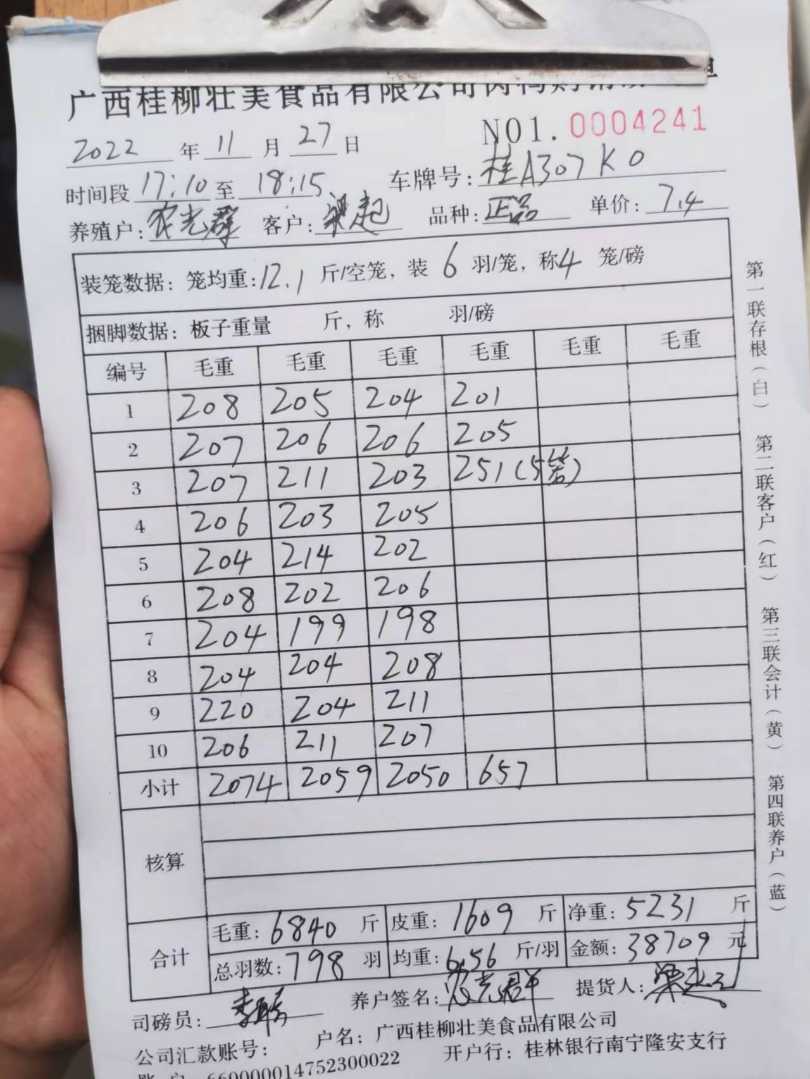 广西桂柳壮美食品有限公司肉鸭购销
2022 年 11 月 27 日 NO1. 0004241
时间段 17:10 至 18:15 车牌号: 桂A307K0
养殖户: 农光群 客户: 梁起 品种: 正品 单价: 7.4
装笼数据: 笼均重: 12.1 斤/空笼, 装 6 羽/笼, 称 4 笼/磅
捆脚数据: 板子重量 斤, 称 羽/磅
编号 毛重 毛重 毛重 毛重 毛重 毛重
1 208 205 204 201
2 207 206 206 205
3 207 211 203 251(5笼)
4 206 203 205
5 204 214 202
6 208 202 206
7 204 199 198
8 204 204 208
9 220 204 211
10 206 211 207
小计 2074 2059 2050 657
核算
合计 毛重: 6840 斤 皮重: 1609 斤 净重: 5231 斤
总羽数: 798 羽 均重: 6.56 斤/羽 金额: 38709 元
司磅员: 养户签名: 农光群 提货人:
公司汇款账号: 户名: 广西桂柳壮美食品有限公司
账户 660000014752300022 开户行: 桂林银行南宁隆安支行
第一联存根(白) 第二联客户(红) 第三联会计(黄) 第四联养户(蓝)